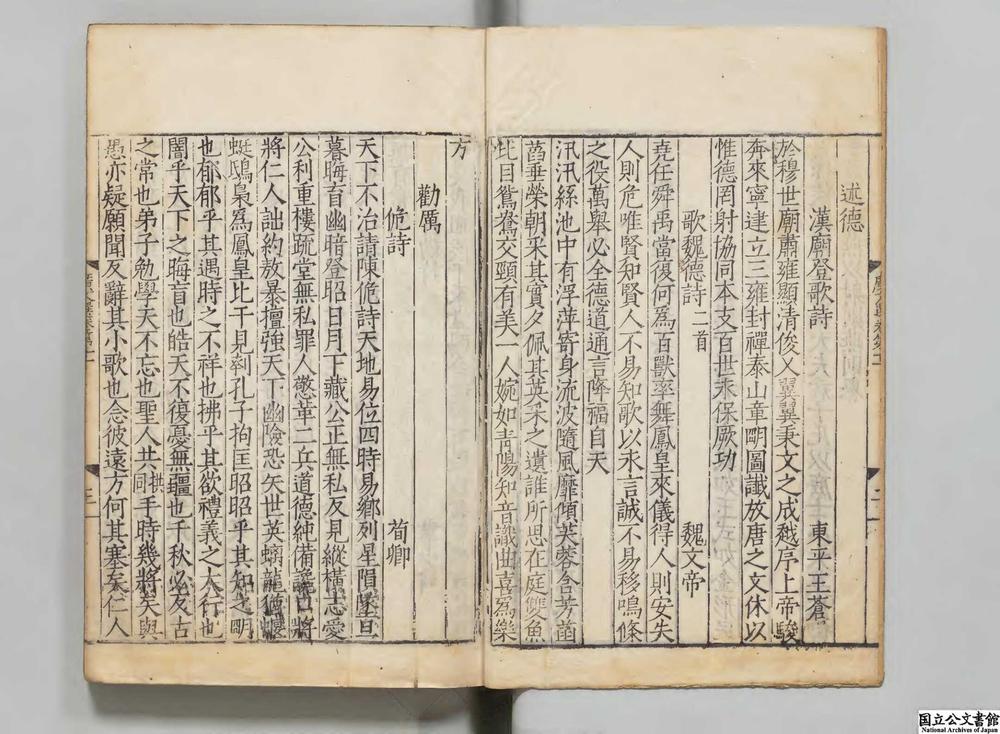 述德
漢廟登歌詩 東平王蒼
於穆世廟肅雍顯清俊乂翼翼秉文之成越序上帝駿
奔來寧建立三雍封禪泰山章明圖讖放唐之文休以
惟德罔射協同本支百世永保厥功
歌魏德詩二首 魏文帝
堯任舜禹當復何為百獸率舞鳳皇來儀得人則安失
人則危唯賢知賢人不易知歌以永言誠不易移鳴條
之役萬舉必全德道通言降福自天
汎汎綠池中有浮萍寄身流波隨風靡傾芙蓉含芳菡
萏垂榮朝采其實夕佩其英采之遺誰所思在庭雙魚
比目鴛鴦交頸有美一人婉如青陽知音識曲喜為樂
方
勸厲
佹詩 荀卿
天下不治請陳佹詩天地易位四時易鄉列星隕墜旦
暮晦盲幽暗登昭日月下藏公正無私反見縱橫志愛
公利重樓疏堂無私罪人憼革二兵道德純備讒口將
將仁人詘約敖暴擅強天下幽險恐失世英螭龍為蝘
蜓鴟梟為鳳皇比干見刳孔子拘匡昭昭乎其知之明
也郁郁乎其遇時之不祥也拂乎其欲禮義之大行也
闇乎天下之晦盲也皓天不復憂無疆也千秋必反古
之常也弟子勉學天不忘也聖人共同拱手時幾將矣與
愚亦疑願聞反辭其小歌也念彼遠方何其塞矣仁人
国立公文書館
National Archives of Japan